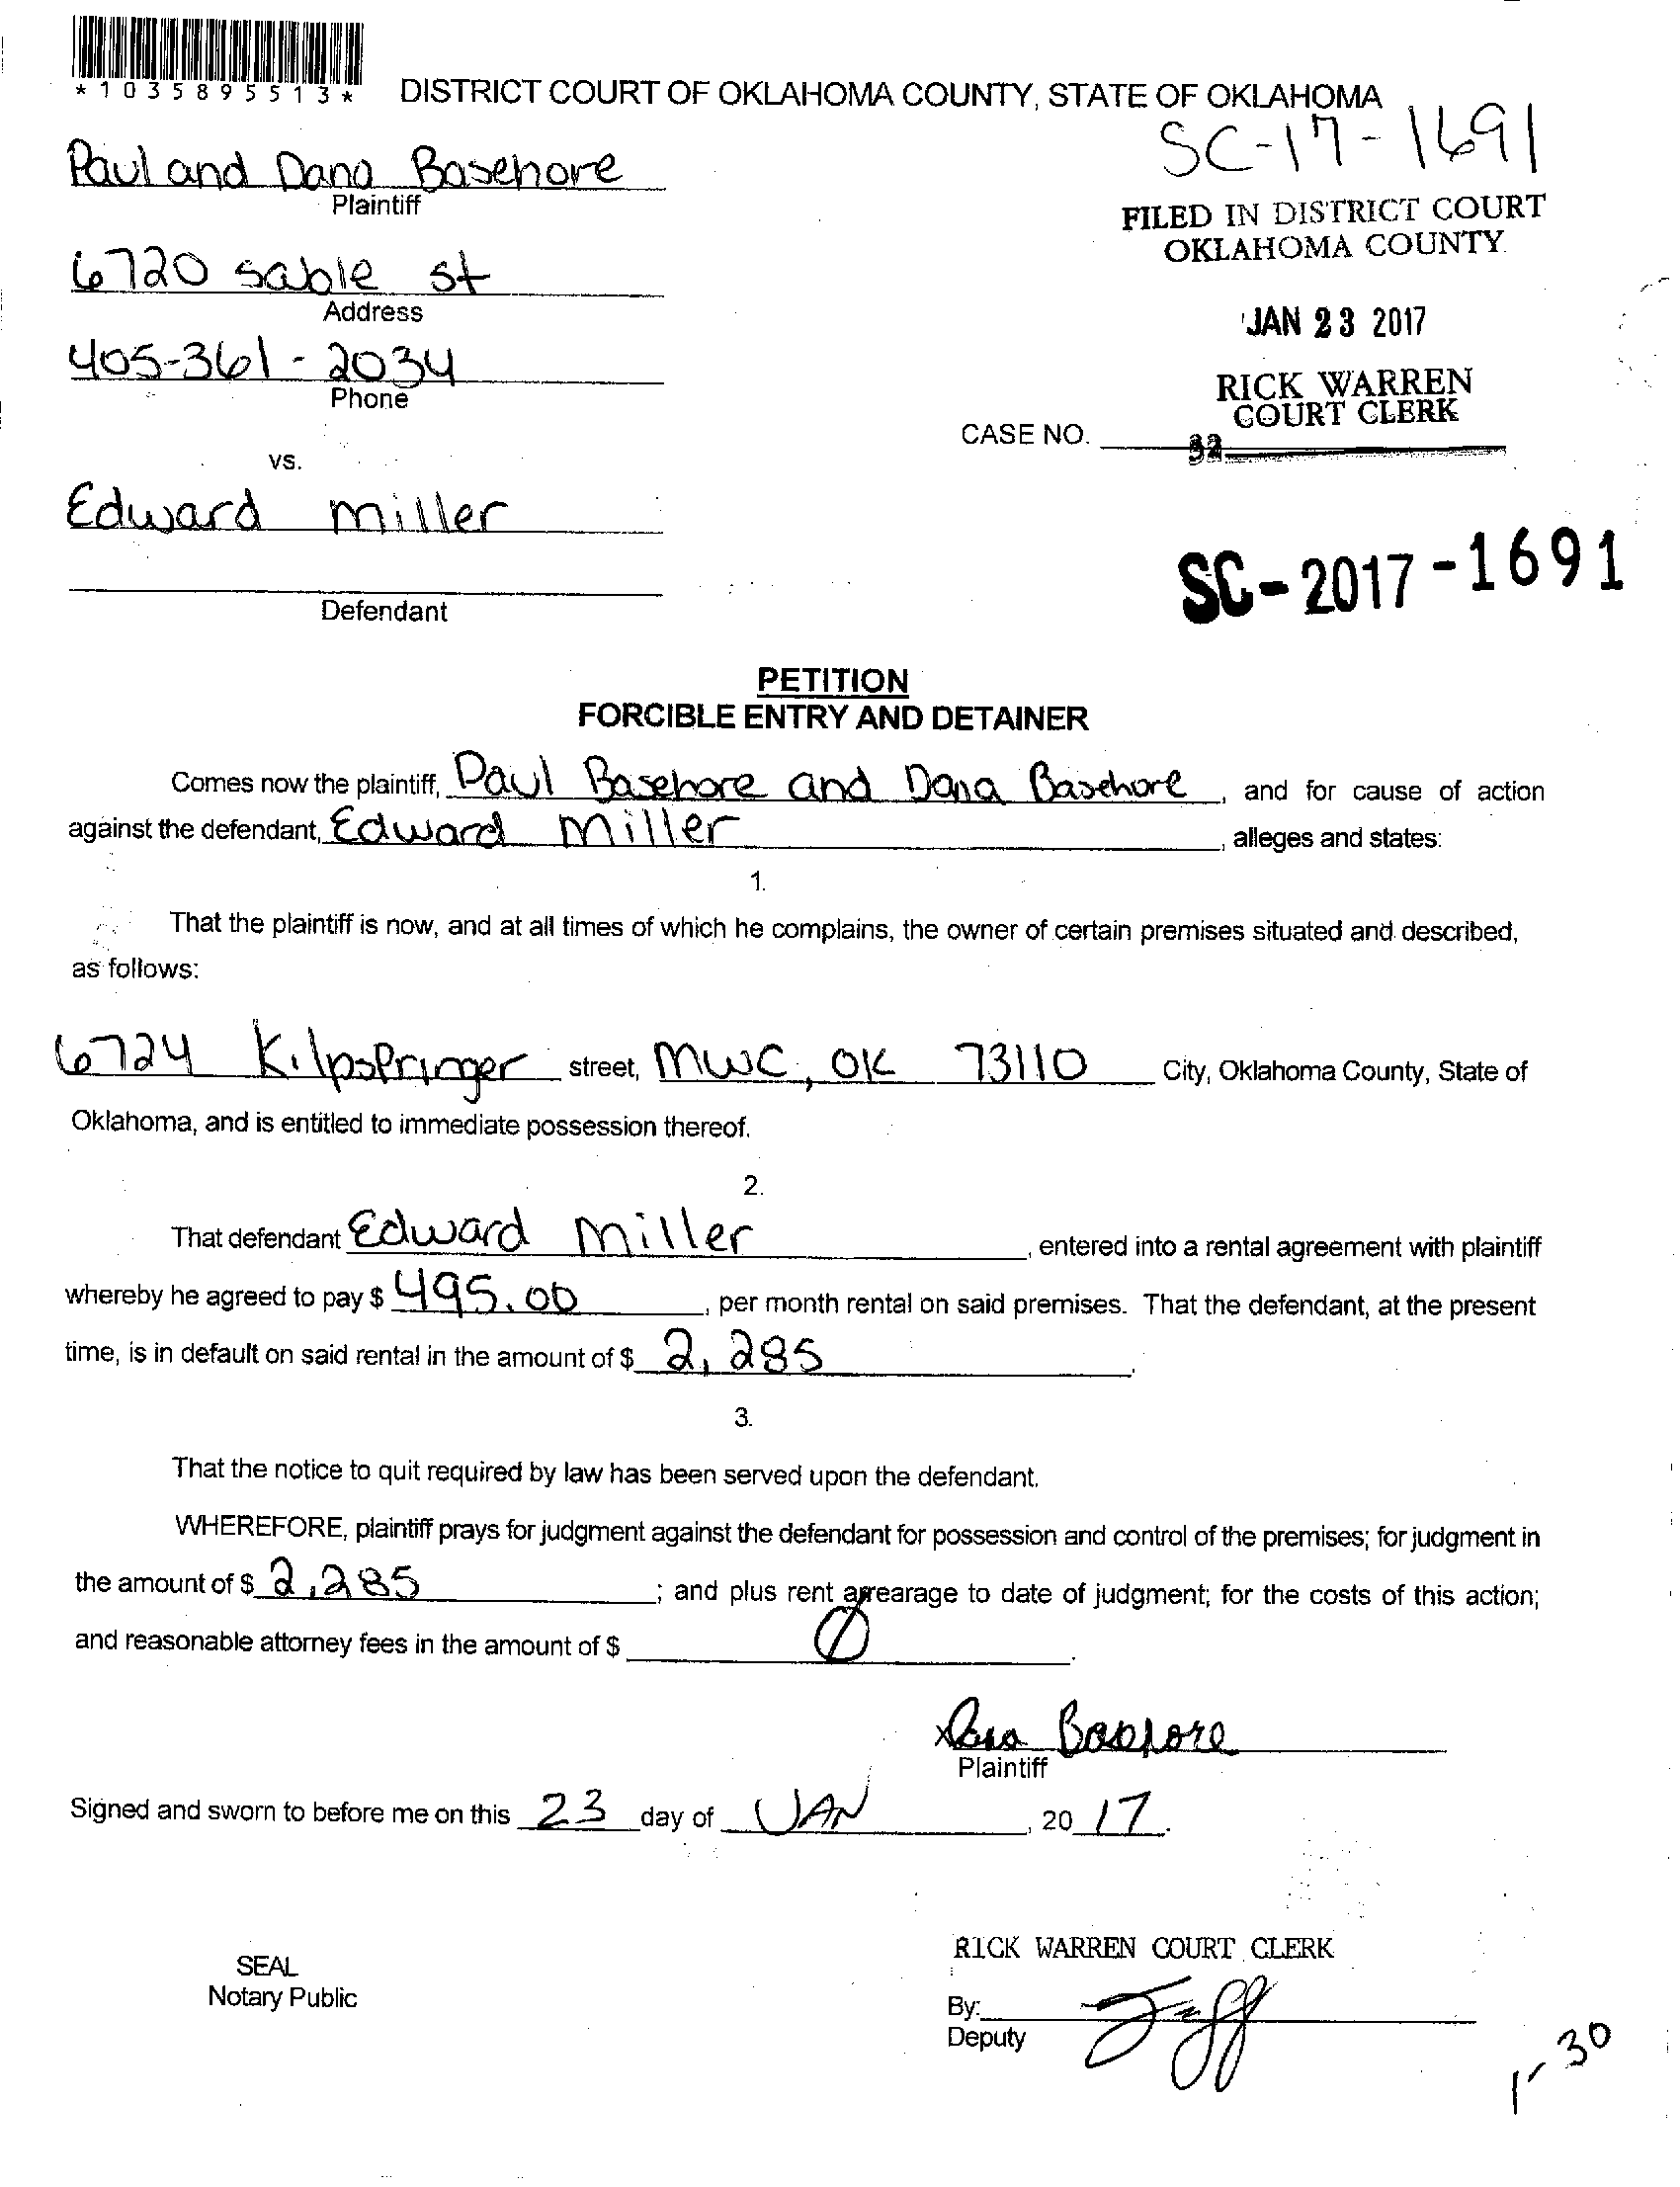 *1035895513*
DISTRICT COURT OF OKLAHOMA COUNTY, STATE OF OKLAHOMA
SC-17-1691
Paul and Dana Basehore
Plaintiff
FILED IN DISTRICT COURT
OKLAHOMA COUNTY
6720 sable st
Address
JAN 23 2017
405-361-2034
Phone
RICK WARREN
COURT CLERK
CASE NO.
32
vs.
Edward miller
Defendant
SC-2017-1691
PETITION
FORCIBLE ENTRY AND DETAINER
Comes now the plaintiff, Paul Basehore and Dana Basehore, and for cause of action
against the defendant, Edward Miller, alleges and states:
1.
That the plaintiff is now, and at all times of which he complains, the owner of certain premises situated and described,
as follows:
6724 Kilpspringer street, MWC, OK 73110 City, Oklahoma County, State of
Oklahoma, and is entitled to immediate possession thereof.
2.
That defendant Edward Miller, entered into a rental agreement with plaintiff
whereby he agreed to pay $ 495.00, per month rental on said premises. That the defendant, at the present
time, is in default on said rental in the amount of $ 2,285.
3.
That the notice to quit required by law has been served upon the defendant.
WHEREFORE, plaintiff prays for judgment against the defendant for possession and control of the premises; for judgment in
the amount of $ 2,285; and plus rent arrearage to date of judgment; for the costs of this action;
and reasonable attorney fees in the amount of $ Ø.
x Dana Basehore
Plaintiff
Signed and sworn to before me on this 23 day of JAN, 20 17.
RICK WARREN COURT CLERK
SEAL
Notary Public
By:
Deputy
1-30